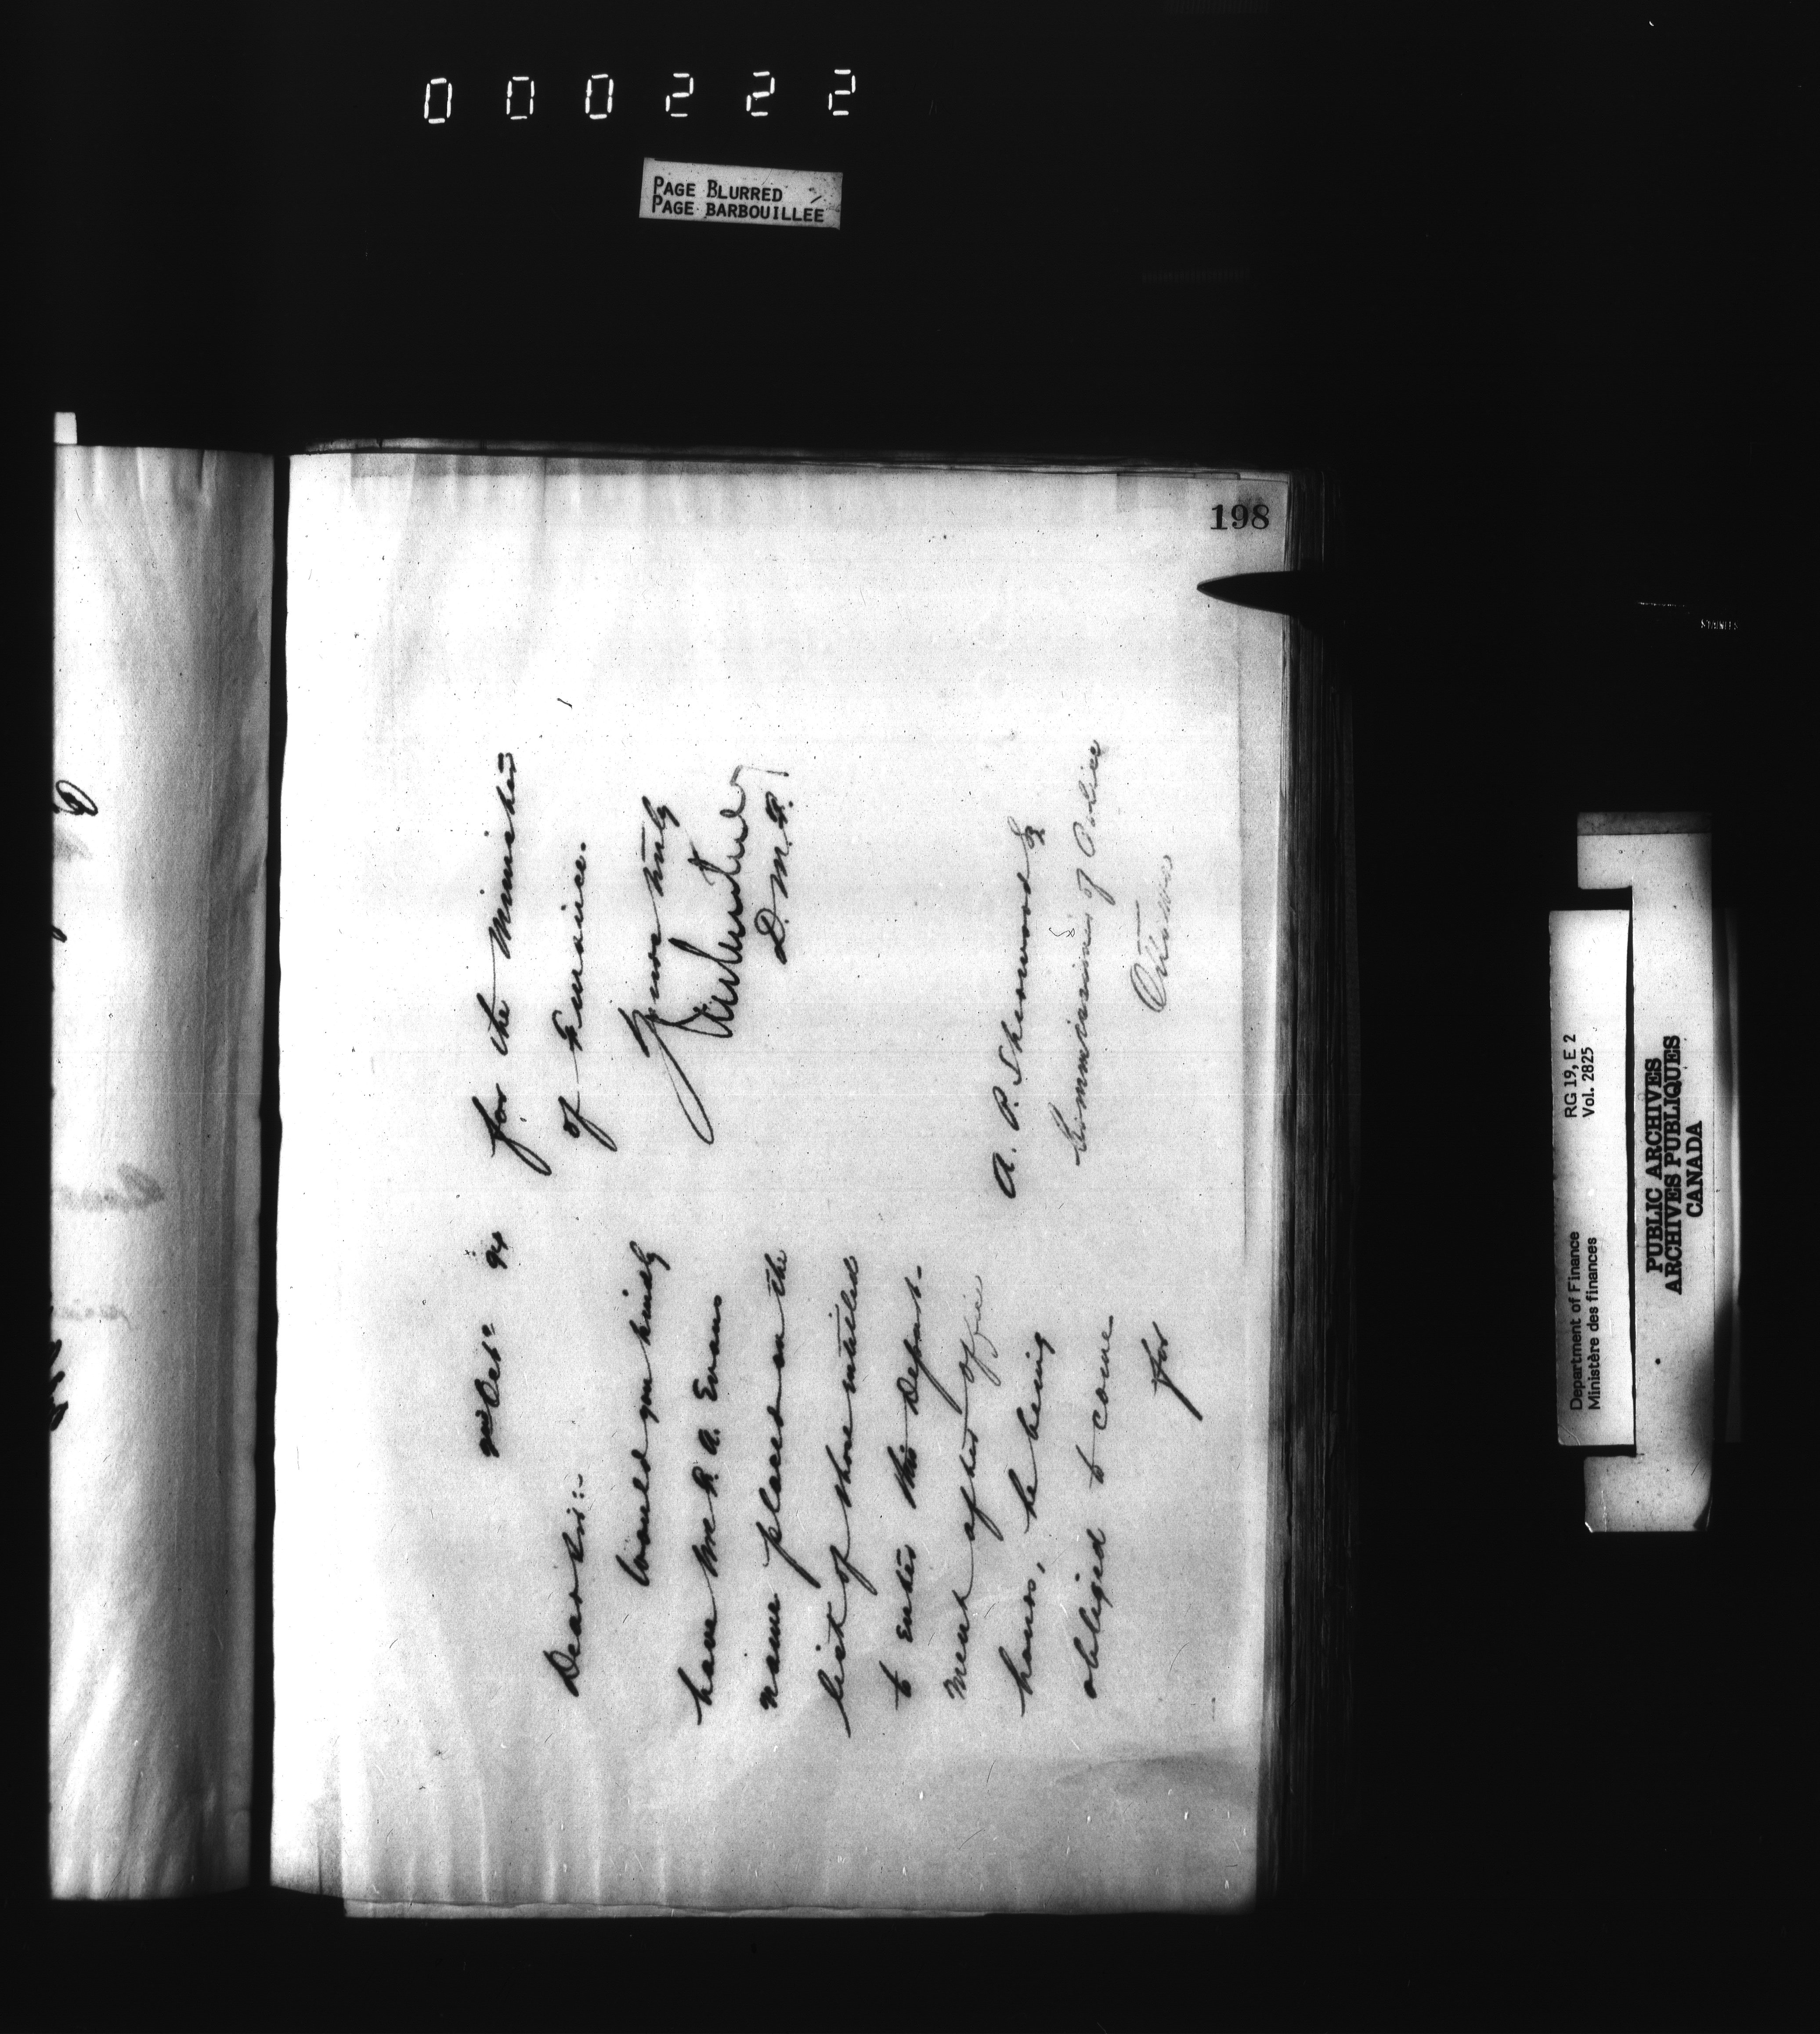 000222
PAGE BLURRED
PAGE BARBOUILLEE
198
Octr 94
Dear Sir:-
Would you kindly
have Mr R. A. Evans
name placed on the
list of those entitled
to enter this Depart-
ment after office
hours, he being
obliged to come
for
for the Minister
of Finance.
Yours truly
D. M. F.
A. P. Sherwood Esq
Commissioner of Police
Ottawa
Department of Finance RG 19, E 2
Ministère des finances Vol. 2825
PUBLIC ARCHIVES
ARCHIVES PUBLIQUES
CANADA